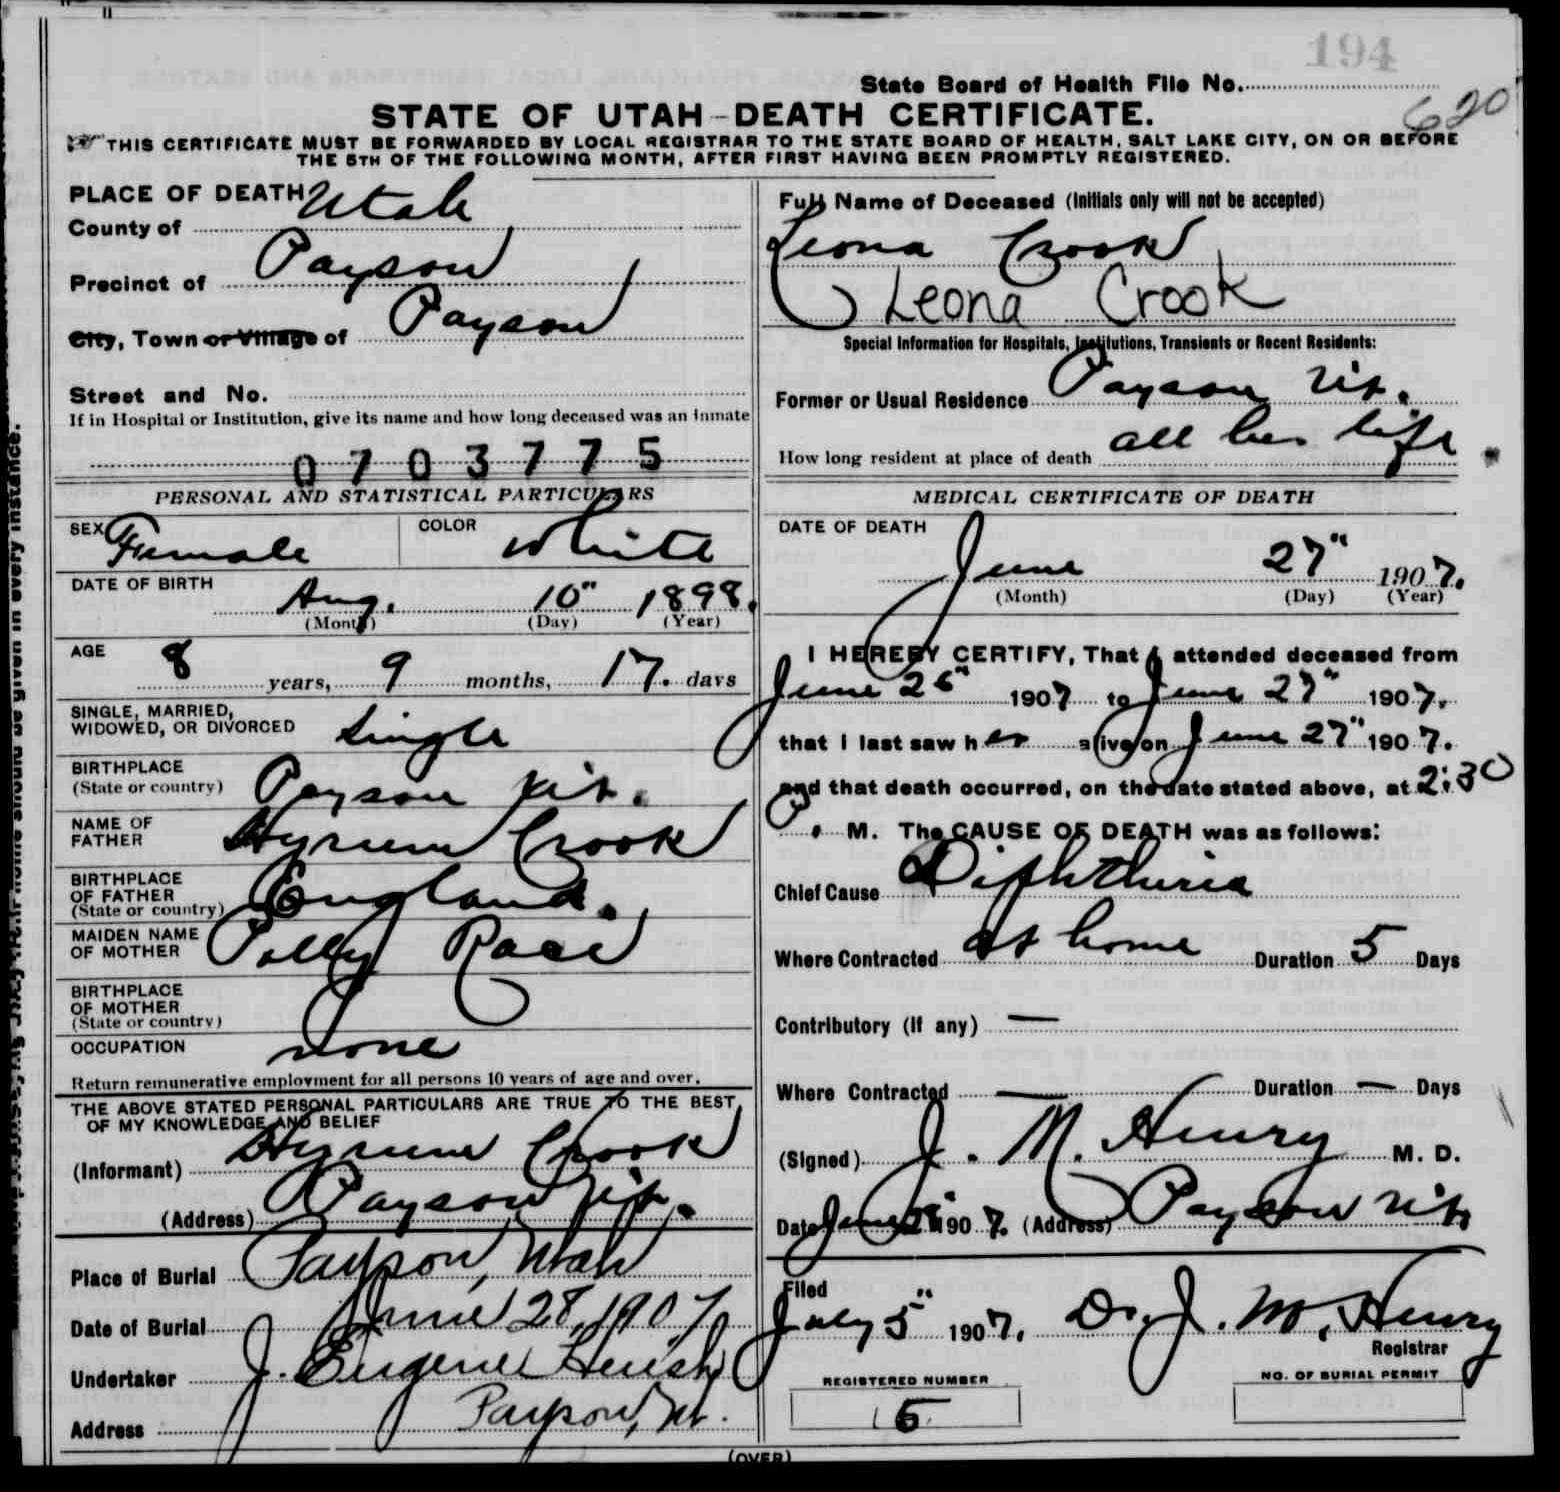 194
State Board of Health File No.
620
STATE OF UTAH-DEATH CERTIFICATE.
THIS CERTIFICATE MUST BE FORWARDED BY LOCAL REGISTRAR TO THE STATE BOARD OF HEALTH, SALT LAKE CITY, ON OR BEFORE
THE 5TH OF THE FOLLOWING MONTH, AFTER FIRST HAVING BEEN PROMPTLY REGISTERED.
PLACE OF DEATH
County of Utah
Precinct of Payson
City, Town or Village of Payson
Street and No.
If in Hospital or Institution, give its name and how long deceased was an inmate
0703775
PERSONAL AND STATISTICAL PARTICULARS
SEX Female COLOR White
DATE OF BIRTH Aug. 10" 1898.
(Month) (Day) (Year)
AGE 8 years, 9 months, 17. days
SINGLE, MARRIED,
WIDOWED, OR DIVORCED Single
BIRTHPLACE
(State or country) Payson Ut.
NAME OF
FATHER Hyrum Crook
BIRTHPLACE
OF FATHER
(State or country) England.
MAIDEN NAME
OF MOTHER Polly
BIRTHPLACE
OF MOTHER
(State or country)
OCCUPATION none
Return remunerative employment for all persons 10 years of age and over.
THE ABOVE STATED PERSONAL PARTICULARS ARE TRUE TO THE BEST
OF MY KNOWLEDGE AND BELIEF
(Informant) Hyrum Crook
(Address) Payson Ut.
Place of Burial Payson, Utah
Date of Burial June 28, 1907
Undertaker J. Eugene
Address Payson, Ut.
Full Name of Deceased (Initials only will not be accepted)
Leona Crook
Leona Crook
Special Information for Hospitals, Institutions, Transients or Recent Residents:
Former or Usual Residence Payson Ut.
How long resident at place of death all her life
MEDICAL CERTIFICATE OF DEATH
DATE OF DEATH
June 27" 1907.
(Month) (Day) (Year)
I HEREBY CERTIFY, That I attended deceased from
June 1907 to June 27" 1907.
that I last saw her alive on June 27" 1907.
and that death occurred, on the date stated above, at 2:30
P. M. The CAUSE OF DEATH was as follows:
Chief Cause Diphtheria
Where Contracted at home Duration 5 Days
Contributory (if any) —
Where Contracted — Duration — Days
(Signed) J. M. Henry M. D.
Date June 1907. (Address) Payson Ut.
Filed
July 5" 1907. Dr. J. M. Henry
Registrar
REGISTERED NUMBER NO. OF BURIAL PERMIT
(OVER)